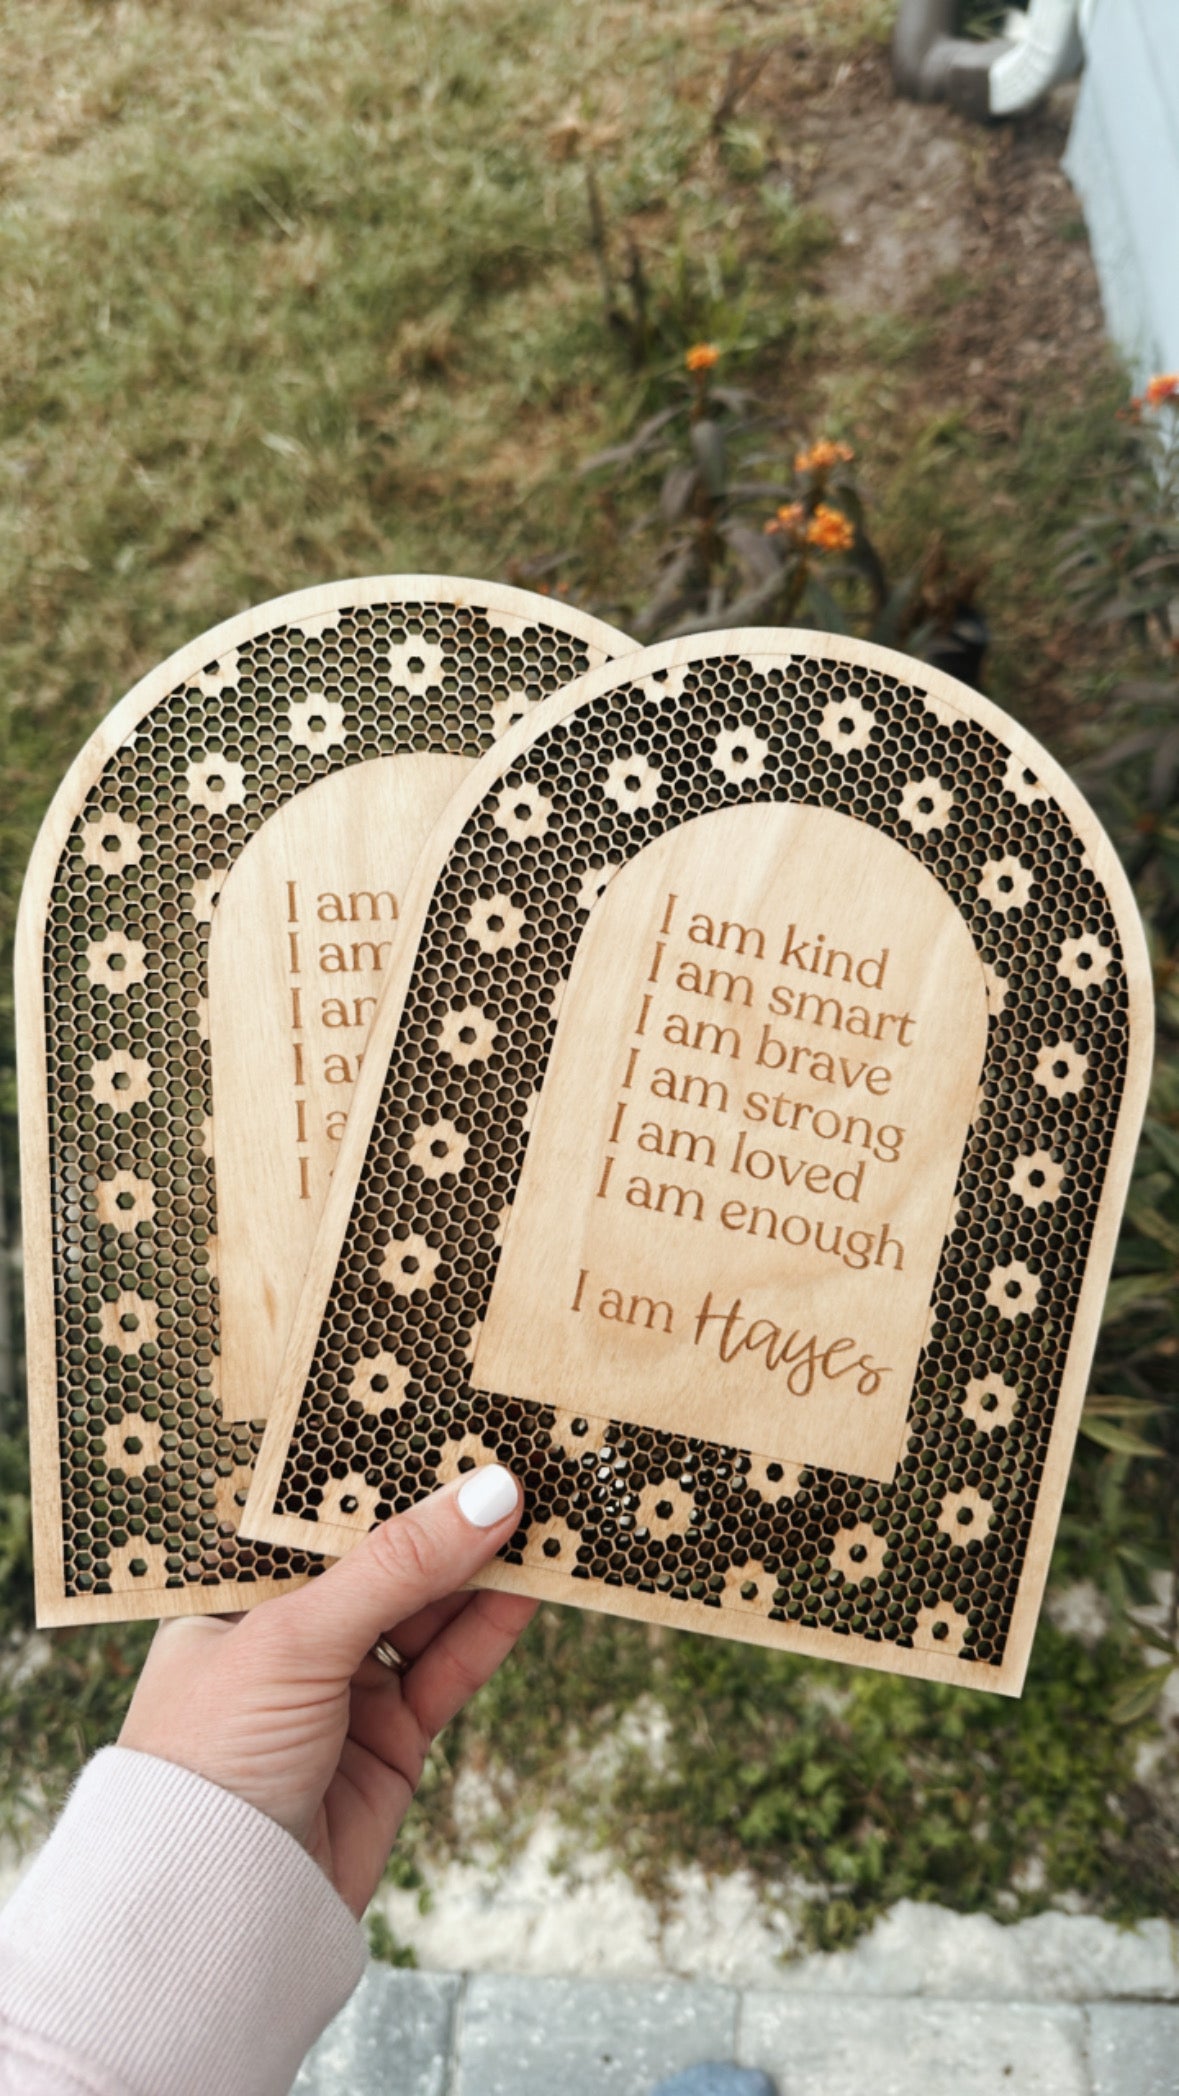 I am
I am
I
I
I
I
I am kind
I am smart
I am brave
I am strong
I am loved
I am enough
I am Hayes